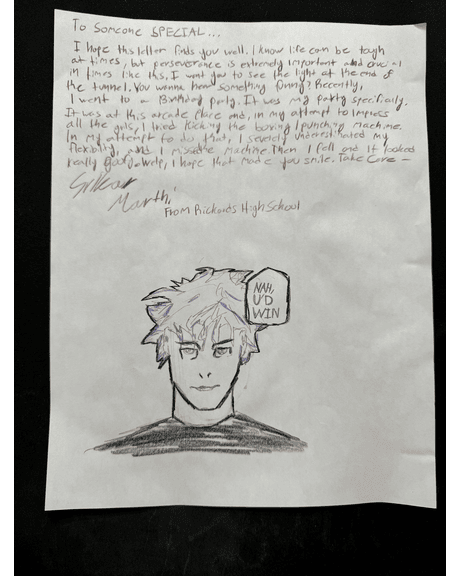 To Someone SPECIAL...
I hope this letter finds you well. I know life can be tough
at times, but perseverance is extremely important and crucial
in times like this, I want you to see the light at the end of
the tunnel. You wanna hear something funny? Recently,
I went to a Birthday party. It was my party specifically.
It was at this arcade place and, in my attempt to impress
all the girls, I tried kicking the boxing/punching machine.
In my attempt to do that, I severely underestimated my
flexibility, and I missed the machine. Then I fell and it looked
really goofy. Welp, I hope that made you smile. Take Care -
From Rickards High School
NAH,
U'D
WIN